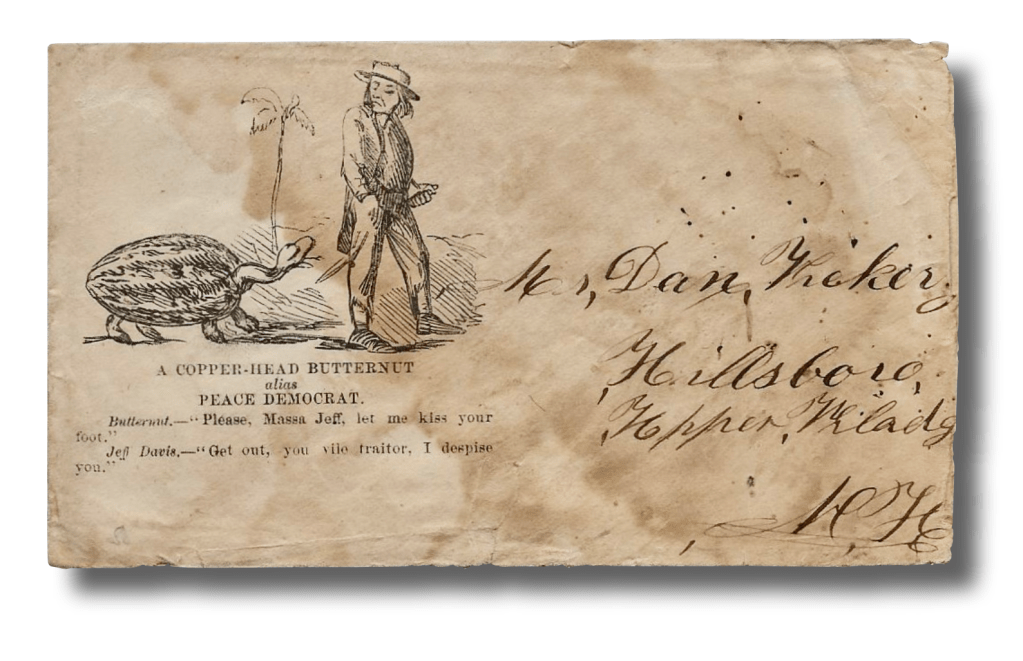 A COPPER-HEAD BUTTERNUT
alias
PEACE DEMOCRAT.
Butternut.—"Please, Massa Jeff, let me kiss your
foot."
Jeff Davis.—"Get out, you vile traitor, I despise
you."
Mr, Dan,
Hillsboro,
N H